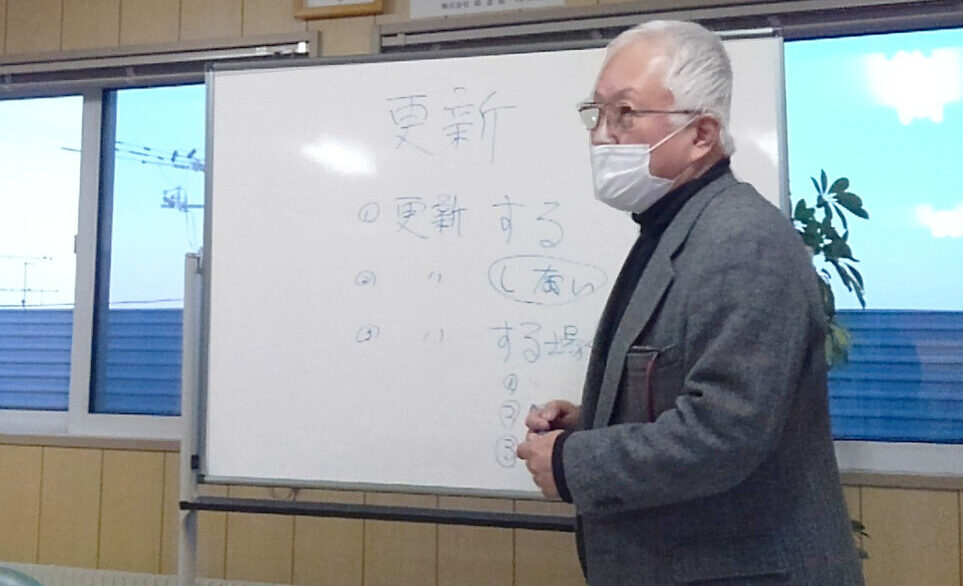 更新
① 更新 する
② 〃 し無い
③ 〃 する場
①
②
③